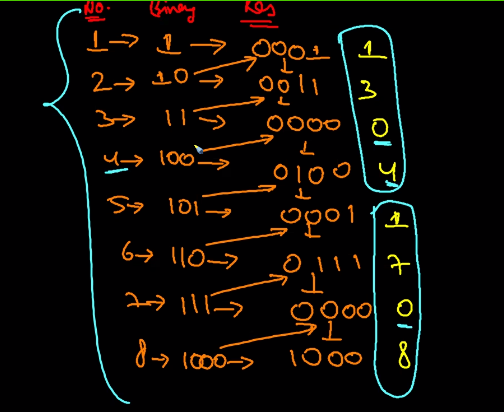 No. Binary Res
1 → 1 → 0001 1
1
2 → 10 → 0011 3
1
3 → 11 → 0000 0
1
4 → 100 → 0100 4
1
5 → 101 → 0001 1
1
6 → 110 → 0111 7
1
7 → 111 → 0000 0
1
8 → 1000 → 1000 8